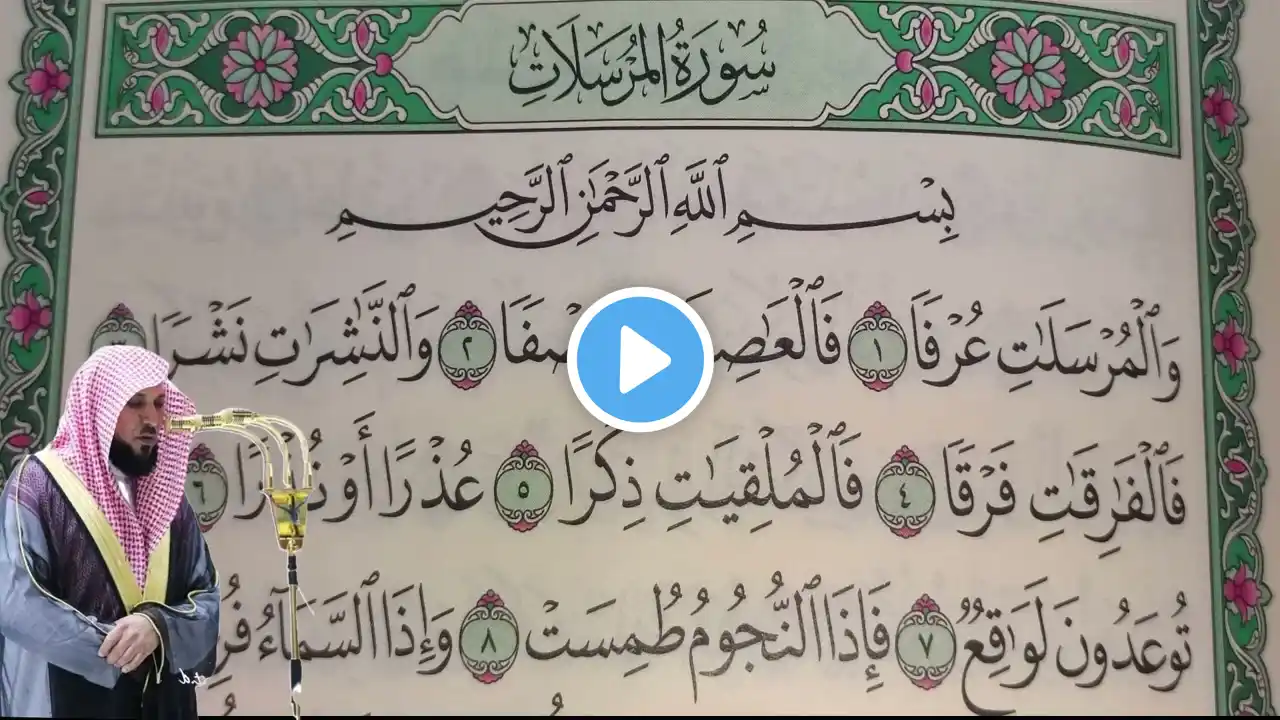 سُورَةُ المُرْسَلَاتِ
بِسْمِ ٱللَّهِ ٱلرَّحْمَٰنِ ٱلرَّحِيمِ
وَٱلْمُرْسَلَٰتِ عُرْفًا ١ فَٱلْعَٰصِ صْفًا ٢ وَٱلنَّٰشِرَٰتِ نَشْرًا ٣
فَٱلْفَٰرِقَٰتِ فَرْقًا ٤ فَٱلْمُلْقِيَٰتِ ذِكْرًا ٥ عُذْرًا أَوْ نُذْرًا ٦
تُوعَدُونَ لَوَٰقِعٌ ٧ فَإِذَا ٱلنُّجُومُ طُمِسَتْ ٨ وَإِذَا ٱلسَّمَآءُ فُرِ